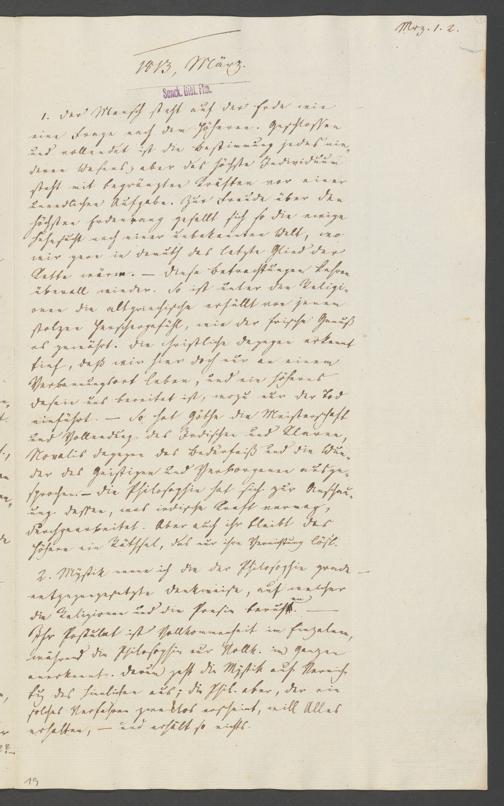 Mrz. 1. 2.
1813, März.
Senck. Bibl. Ffm.
1. Der Mensch steht auf der Erde wie
eine Frage nach dem Höheren. Geschlossen
und vollendet ist die Bestimmung jedes nie-
deren Wesens; aber das höchste Individuum
steht mit begränzten Kräften vor einer
unendlichen Aufgabe. Zur Freude über den
höchsten Erdenrang gesellt sich so die ewige
Sehnsucht nach einer unbekannten Welt, wo
wir gern in Demuth das letzte Glied der
Kette wären. — Diese Betrachtungen kehren
überall wieder. So ist unter den Religi-
onen die altgriechische erfüllt von jenem
stolzen Herrschergefühl, wie der frische Genuß
es gewährt. Die christliche dagegen erkennt
tief, daß wir hier doch nur an einem
Verbannungsort leben, und ein höheres
Dasein uns bereitet ist, wozu nur der Tod
einführt. — So hat Göthe die Meisterschaft
und Vollendung des Irdischen und Klaren,
Novalis dagegen das Bedürfniß und die Wun-
der des Geistigen und Verborgenen ausge-
sprochen. — Die Philosophie hat sich zur Anschau-
ung dessen, was irdische Kraft vermag,
durchgearbeitet. Aber auch ihr bleibt das
Höhere ein Räthsel, das nur ihre Vernichtung löst.
2. Mystik nenne ich die der Philosophie grade
entgegengesetzte Denkweise, auf welcher
die Religionen und die Poesie beruhen. —
Ihr Postulat ist Vollkommenheit im Einzelnen,
während die Philosophie nur Vollk. im Ganzen
anerkennt. Darum geht die Mystik auf Vernich-
tung des Sinnlichen aus; die Phil. aber, der ein
solches Verfahren zwecklos erscheint, will Alles
erhalten, — und erhält so nichts.
19